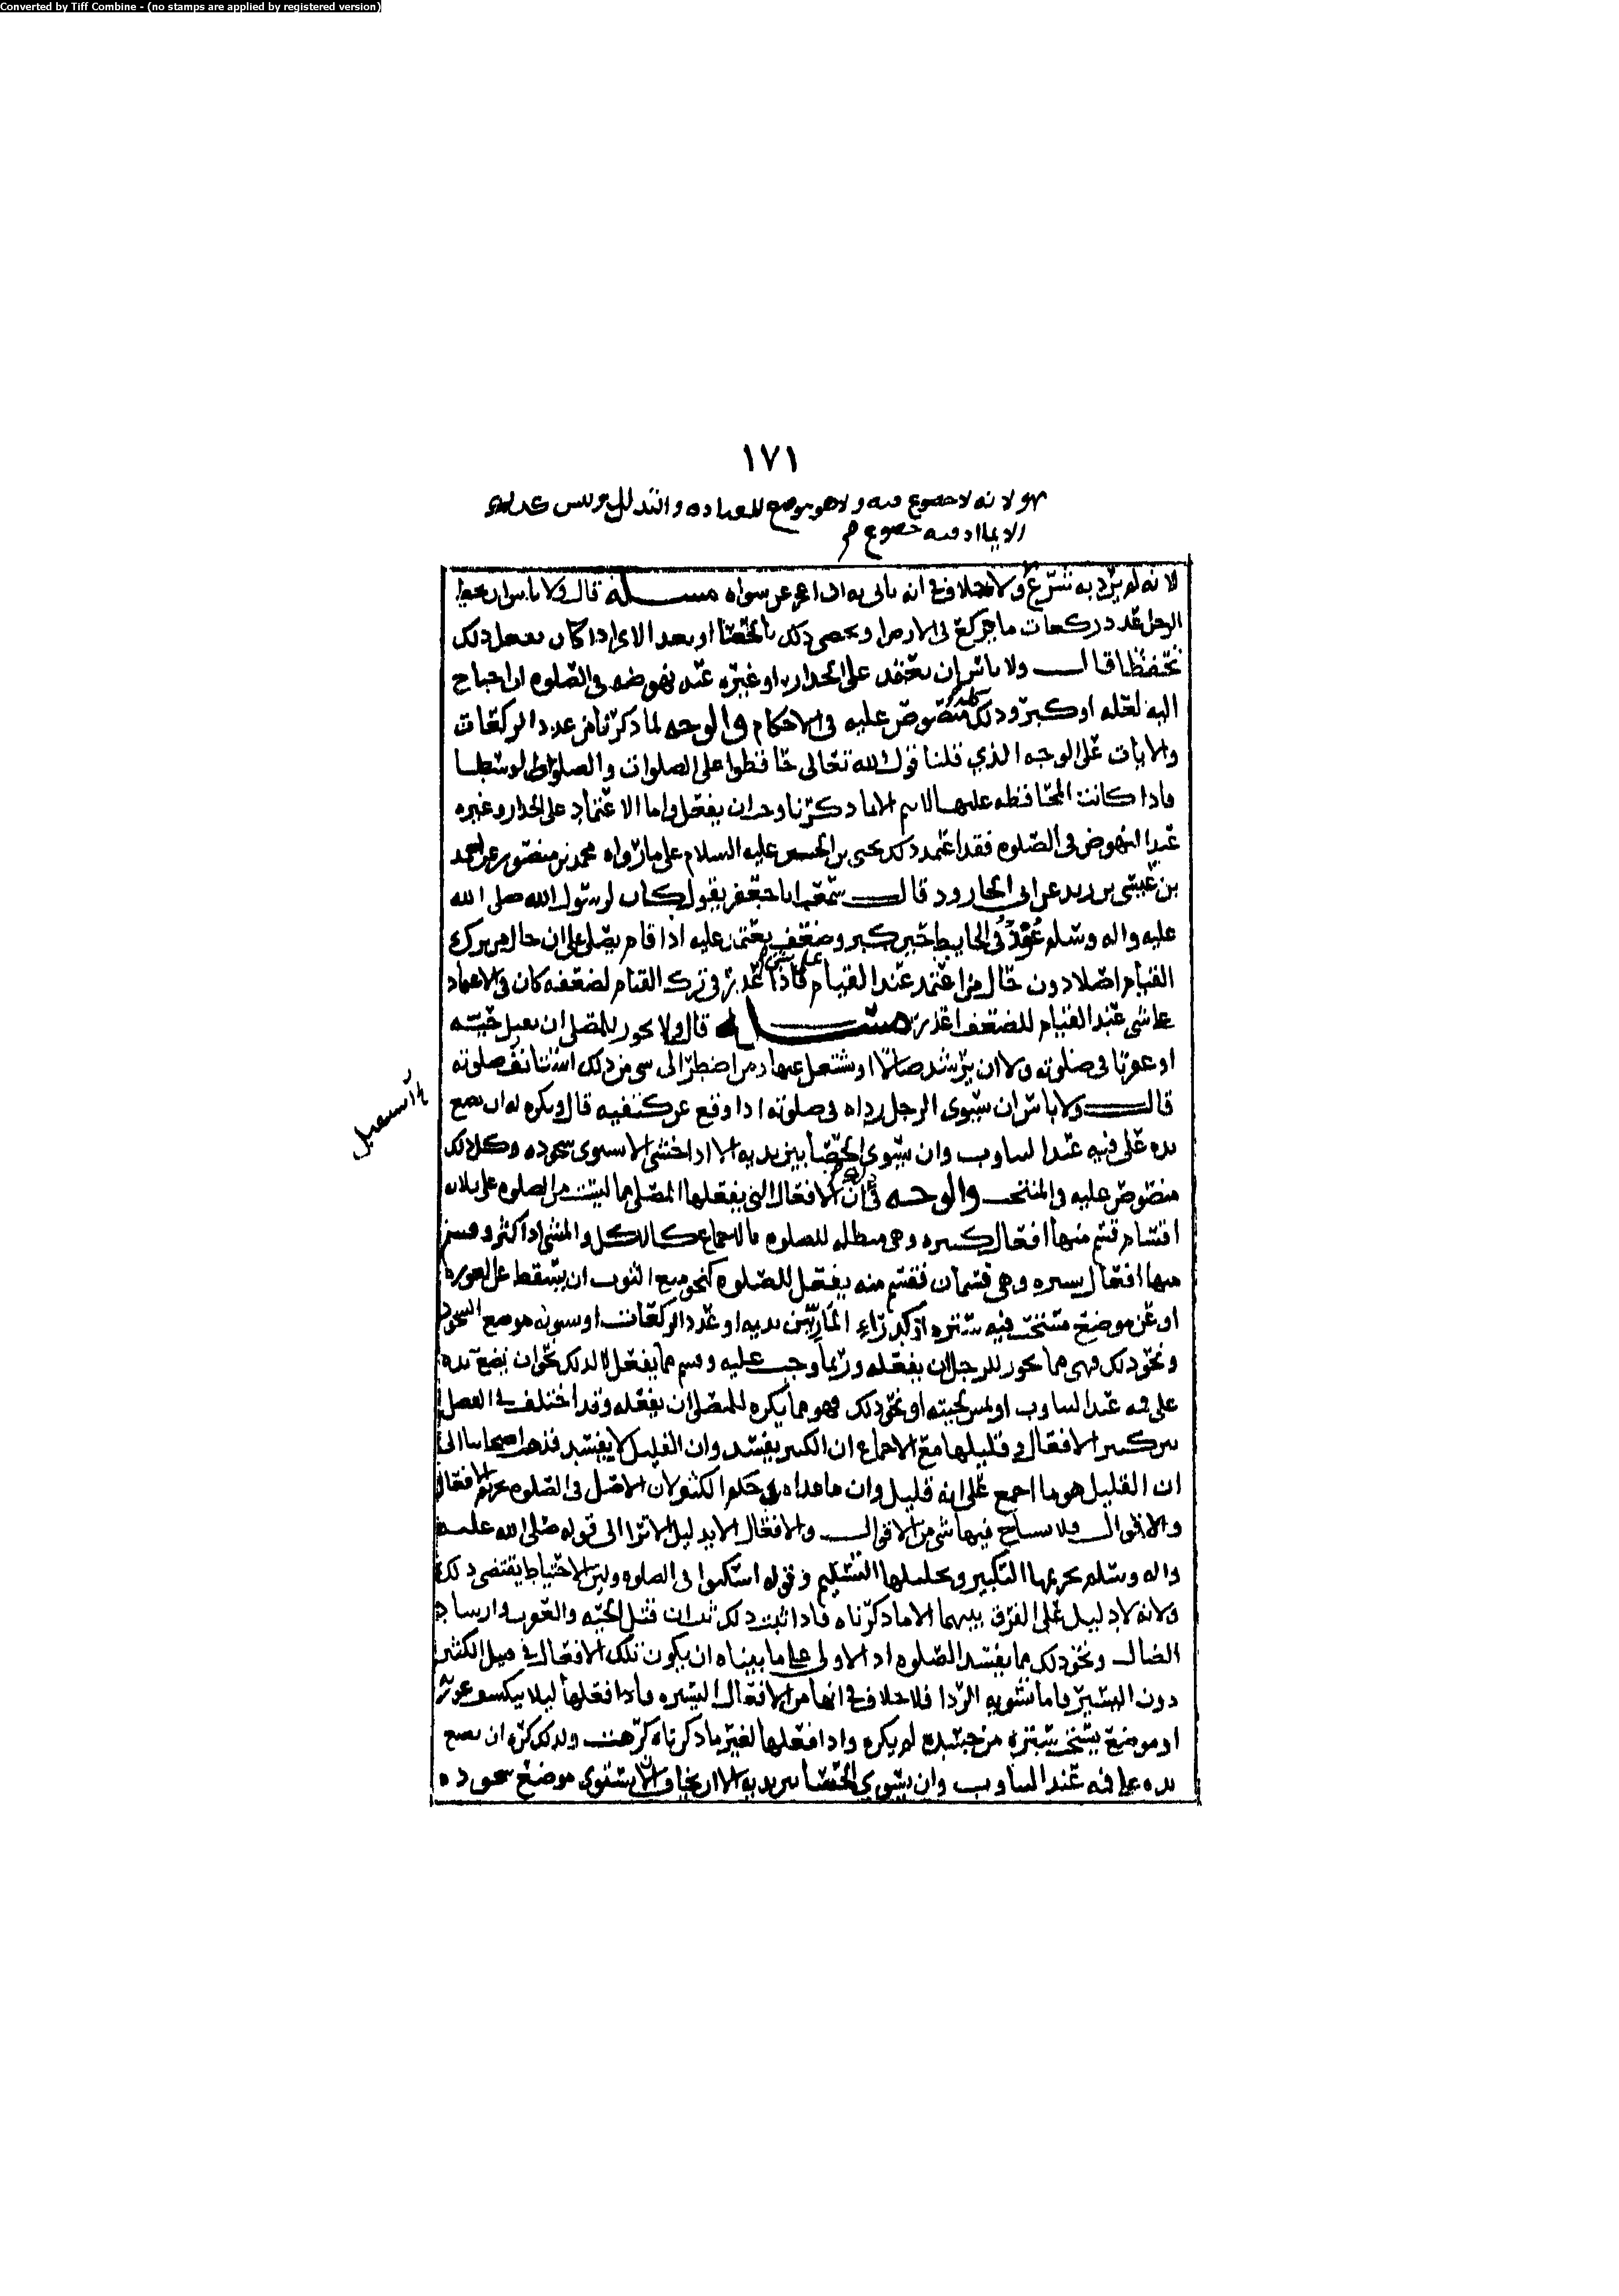 Converted by Tiff Combine - (no stamps are applied by registered version)
١٧١
لانه لا خضوع فيه ولا هو موضع للعباده والتذلل وليس كذلك
الايما اذ فيه خضوع
لانه لم يرد به شرع ولا خلاف في انه ياتي به اذا عجز عن سواه مسئلة قال ولا باس ان يحفظ
الرجل عدد ركعات ما يركع في الارض ويحصي ذلك بالحصا او بعد الاي اذا كان يفعل ذلك
تحفظا قال ولا باس ان يعتمد على الجدار او غيره عند نهوضه في الصلوه ان احتاج
اليه لعله او كبر وذلك كله منصوص عليه في الاحكام والوجه لما ذكرنا من عدد الركعات
والايات على الوجه الذي قلنا قول الله تعالى حافظوا على الصلوات والصلوه الوسطى
فاذا كانت المحافظه عليها لا تتم الا بما ذكرنا وجب ان يفعل واما الاعتماد على الجدار وغيره
عند النهوض في الصلوه فقد اعتمد ذلك يحيى بن الحسين عليه السلام على ما رواه محمد بن منصور عن احمد
بن عيسى بن زيد عن ابي الجارود قال سمعت ابا جعفر يقول كان لرسول الله صلى الله
عليه واله وسلم عود في الحايط حين كبر وضعف يعتمد عليه اذا قام يصلي على ان حال من يترك
القيام اصلا دون حال من اعتمد عند القيام على شي فاذا عذر في ترك القيام لضعفه كان في الاعتماد
على شي عند القيام للضعف اعذر مسئلة قال ولا يجوز للمصلي ان يقتل حيه
او عقربا في صلوته ولا ان يرشد ضالا او يشتغل عنها ومن اضطر الى شي من ذلك استانف صلوته
قال ولا باس ان يسوي الرجل رداه في صلوته اذا وقع عن كتفيه قال ويكره له ان يضع
يده على فيه عند التثاوب وان يسوي الحصا بين يديه الا اذا خشي الا يستوي سجوده وكل ذلك
منصوص عليه في المنتخب والوجه في ذلك ان الافعال التي يفعلها المصلي مما ليست من الصلوه على ثلاثه
اقسام قسم منها افعال كثيره وهي مبطله للصلوه بالاجماع كالاكل والمشي اذا كثر وقسم
منها افعال يسيره وهي قسمان فقسم منه يفعل للصلوه كنحو منع الثوب ان يسقط عن العوره
او عن موضع يستحب فيه ستره او كدراء المار بين يديه او عدد الركعات او تسويه موضع السجود
ونحو ذلك فهي مما يجوز للرجل ان يفعله وربما وجب عليه وقسم مما يفعل لا لذلك نحو ان يضع يده
على فيه عند التثاوب او لمس لحيته او نحو ذلك فهو مما يكره للمصلي ان يفعله وقد اختلف في الفصل
بين كثير الافعال وقليلها مع الاجماع ان الكثير يفسد وان القليل لا يفسد فذهب اصحابنا الى
ان القليل هو ما اجمع على انه قليل وان ما عداه في حكم الكثير لان الاصل في الصلوه تحريم الافعال
والاقوال فلا يستباح فيها شي من الاقوال والافعال الا بدليل الا ترى الى قوله صلى الله عليه
واله وسلم تحريمها التكبير وتحليلها التسليم وقوله اسكنوا في الصلوه وليس الاحتياط يقتضي ذلك
ولانه لا دليل على الفرق بينهما الا ما ذكرناه فاذا ثبت ذلك ثبت ان قتل الحيه والعقرب وارشاد
الضال ونحو ذلك مما يفسد الصلوه اذ الاولى على ما بيناه ان يكون تلك الافعال في قبيل الكثير
دون اليسير واما تسويه الردا فلا خلاف في انها من الافعال اليسيره فاذا فعلها ليلا ينكشف عورته
او موضع يستحب ستره من جسده لم يكره واذا فعلها لغير ما ذكرناه كرهت ولذلك كره ان يضع
يده على فيه عند التثاوب وان يسوي الحصا بين يديه الا ان يخاف الا يستوي موضع سجوده